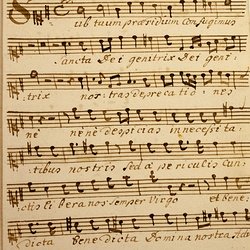 Sub tuum præsidium confugimus
Sancta Dei genitrix Dei geni
trix nostras deprecatio nes
ne ne ne despicias in necesita
tibus nostris sed a periculis cun
ctis libera nos semper Virgo et bene
dicta benedicta Domina nostra